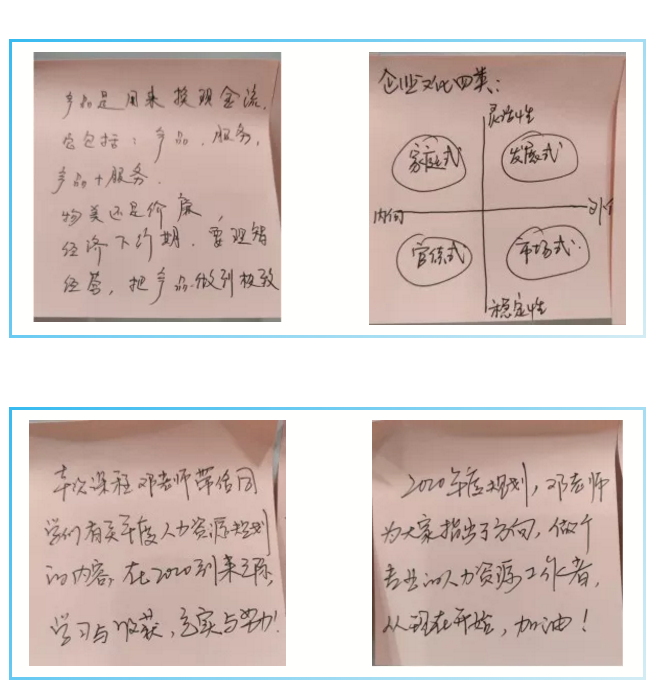 产品是用来换现金流.
它包括：产品、服务,
产品+服务.
物美还是价廉,
经济下行期.要理智
经营,把产品做到极致
企业文化四类:
灵活性
家庭式 发展式
内向 外向
官僚式 市场式
稳定性
本次课程邓老师带给同
学们有关年度人力资源规划
的内容,在2020到来之际,
学习与收获,充实与努力!
2020年度规划,邓老师
为大家指出了方向,做个
专业的人力资源工作者,
从现在开始,加油!